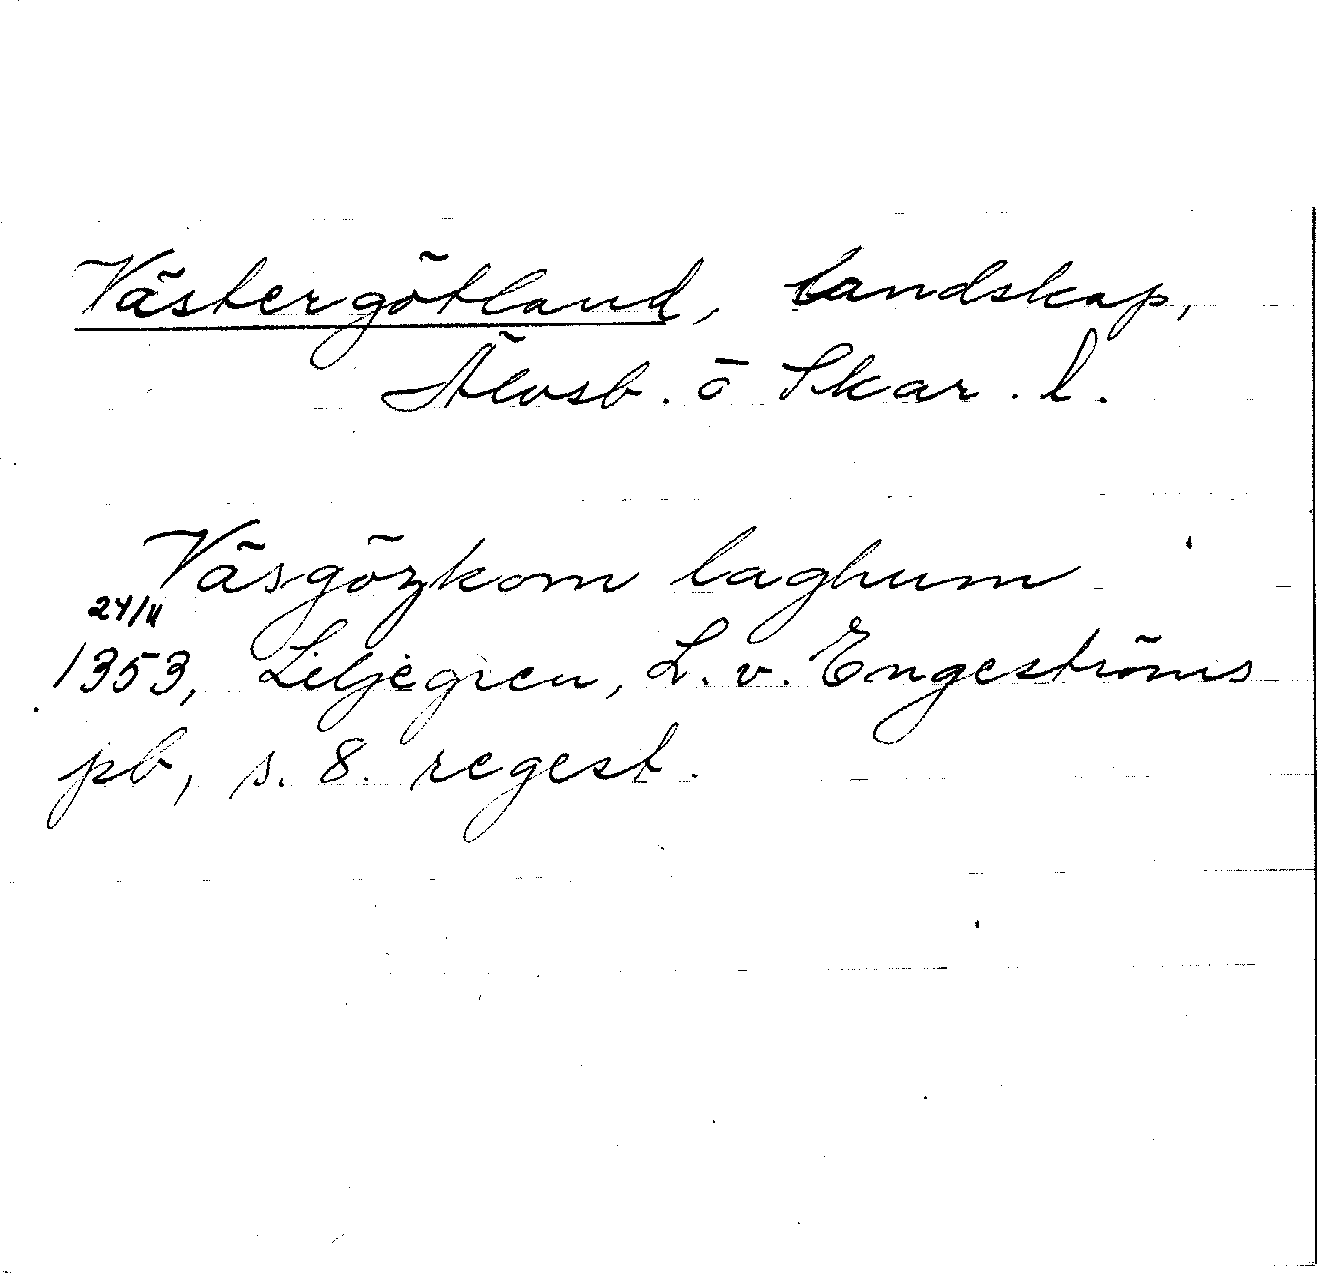 Västergötland, landskap,
Älvsb. o Skar. l.
Väsgözkom laghum
24/11
1353, Liljegren, L. v. Engeströms
pb, s. 8. regest.